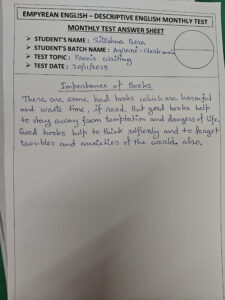 EMPYREAN ENGLISH – DESCRIPTIVE ENGLISH MONTHLY TEST
MONTHLY TEST ANSWER SHEET
➤ STUDENT'S NAME : Bera
➤ STUDENT'S BATCH NAME : Agrani - Clerk main
➤ TEST TOPIC : Precis Writing
➤ TEST DATE : 20/11/2025
Importance of Books
There are some bad books which are harmful
and waste time, if read. But good books help
to stay away from temptation and dangers of life.
Good books help to think selflessly and to forget
troubles and anxieties of the world also.